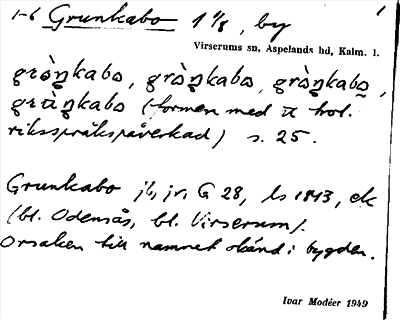 1-6 Grunkabo 1 1/8, by 1
Virserums sn, Aspelands hd, Kalm. l.
(formen med trol.
riksspråkspåverkad) s. 25.
Grunkabo jb, jr, G 28, ls 1843, ek
(bl. Odensås, bl. Virserum).
Orsaken till namnet okänd i bygden.
Ivar Modéer 1949